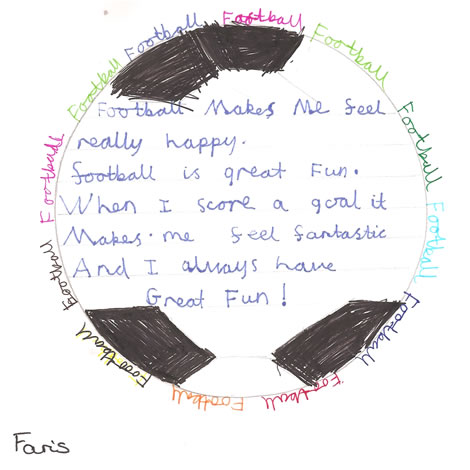 Football
Football
Football
Football
Football
Football
Football
Football
Football
Football
Football
Football
Football Makes Me feel
really happy.
football is great Fun.
When I score a goal it
Makes me feel fantastic
And I always have
Great Fun!
Faris